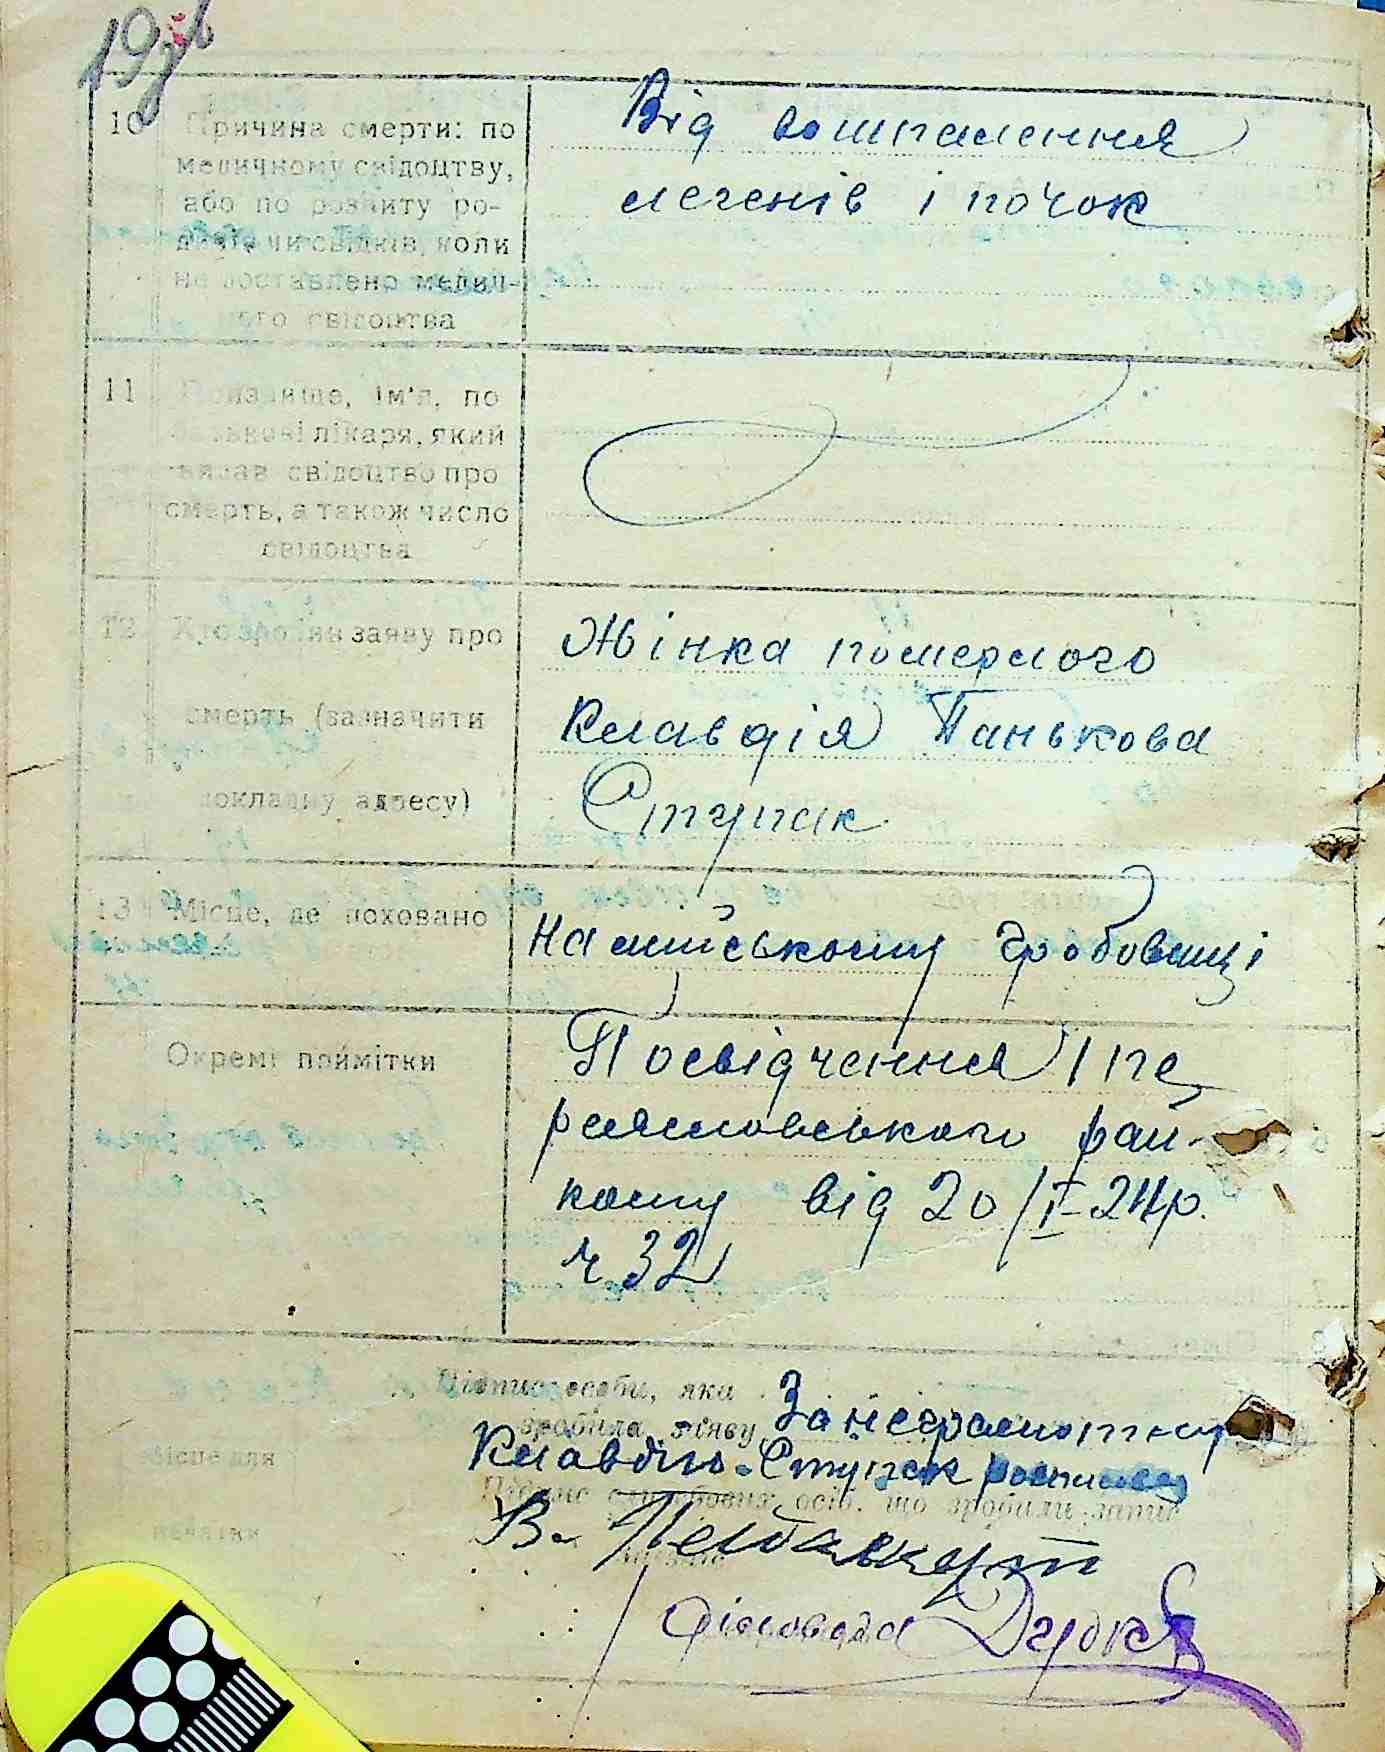 10
Причина смерти: по
медичному свідоцтву,
або по розпиту ро-
дичів чи свідків, коли
не доставлено медич-
ного свідоцтва
Від вошпалення
легенів і почок
11
Прізвище, ім'я, по
батькові лікаря, який
видав свідоцтво про
смерть, а також число
свідоцтва
12
Хто зробив заяву про
смерть (зазначити
докладну адресу)
Жінка померлого
Клавдія Панькова
Ступак
13
Місце, де поховано
На міському гробовищі
Окремі примітки
Посвідчення 1 пе
реяславського рай-
кому від 20/I-24р.
ч 32
Підпис особи, яка
зробила заяву
За неграмотну
Клавдію Ступак
Місце для
печатки
Підпис службових осіб, що зробили запис
В.
Діловода